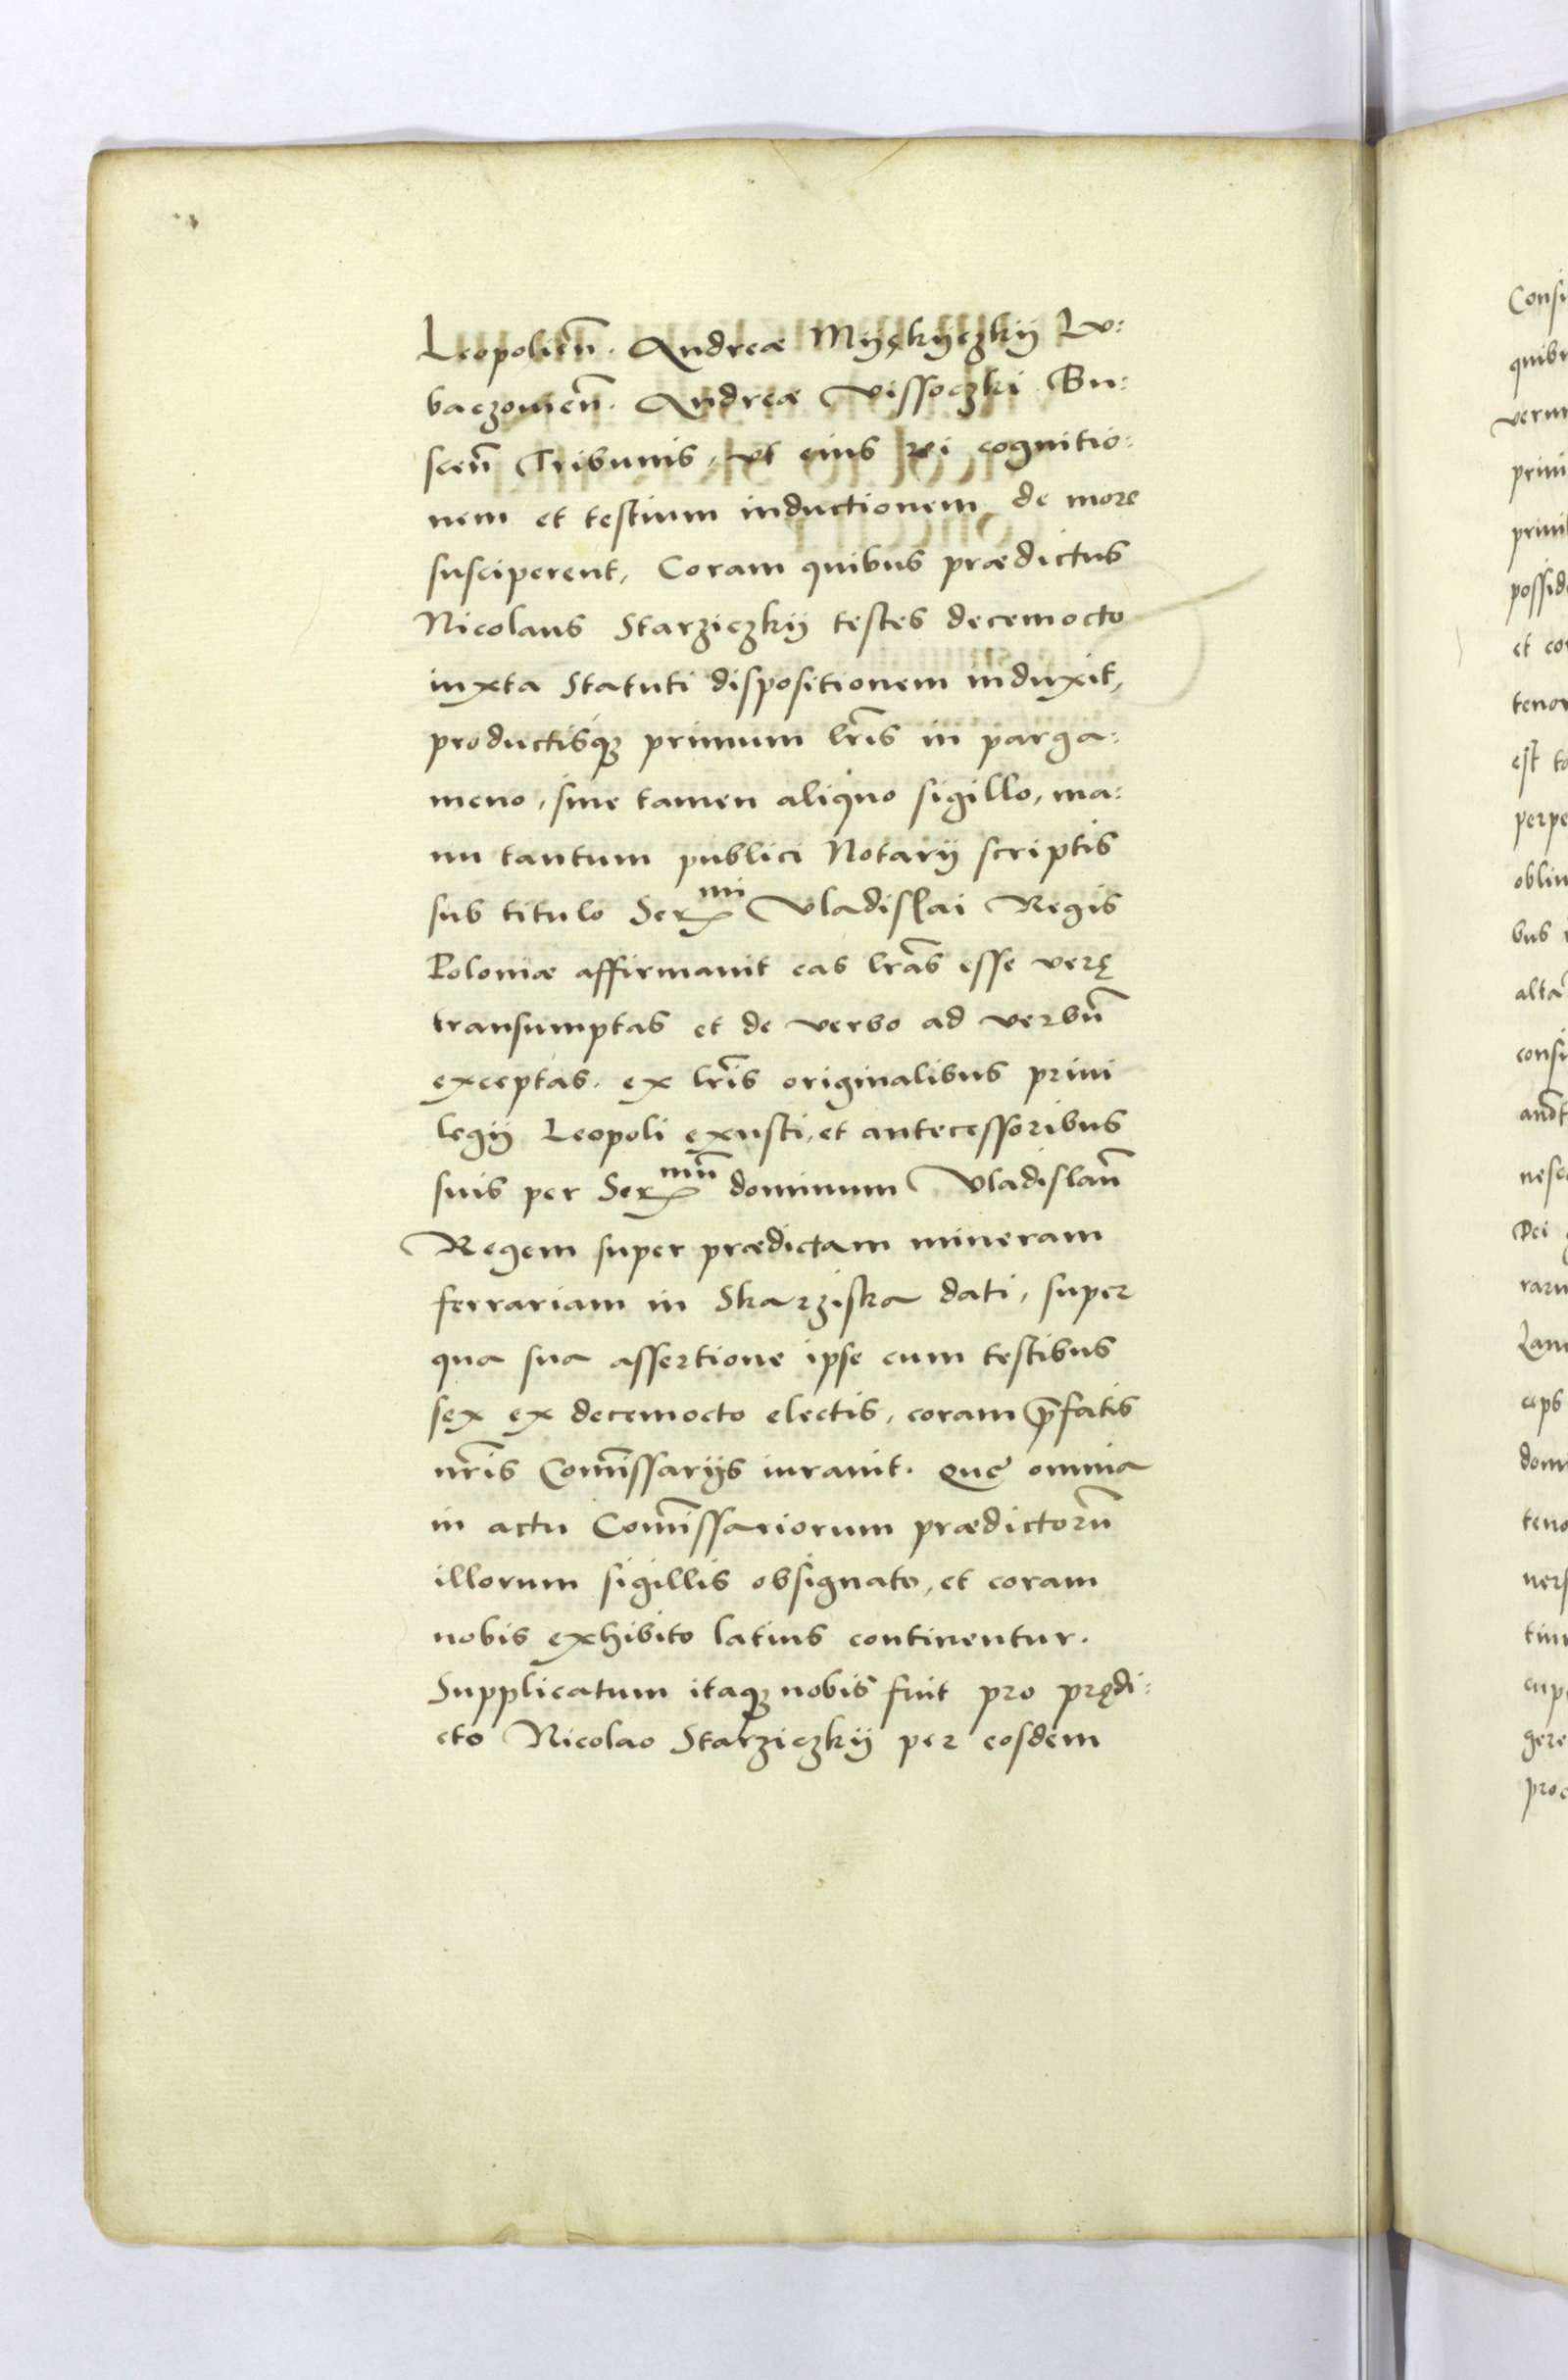 Leopolien̄. Andreæ Myękyczkij Lu:
baczowien̄. Andreæ Vissoczki Bu:
scen̄ Tribunis, ut eius rei cognitio:
nem et testium inductionem de more
susciperent, Coram quibus prædictus
Nicolaus Starziczkij testes decemocto
iuxta Statuti dispositionem induxit,
productisq; primum lr̄is in parga:
meno, sine tamen aliquo sigillo, ma:
nu tantum publici Notarij scriptis
sub titulo Ser^mi Vladislai Regis
Poloniæ affirmauit eas lr̄as esse verę
transumptas et de verbo ad verbū
exceptas. ex lr̄is originalibus priui
legij Leopoli exusti, et antecessoribus
suis per Ser^mū dominum Vladislaū
Regem super prædictam mineram
ferrariam in Skarziska dati, super
qua sua assertione ipse cum testibus
sex ex decemocto electis, coram p̄fatis
nr̄is Com̄issarijs iurauit. quę omnia
in actu Com̄issariorum prædictorū
illorum sigillis obsignato, et coram
nobis exhibito latius continentur.
Supplicatum itaq; nobis fuit pro prędi:
cto Nicolao Starziczkij per eosdem
Consi
quibu
verum
priui
priuil
possid
et co
tenor
est to
perpe
obliu
bus
altā
consi
nesc
Dei
raru
Lan
ceps
dom
teno
uers
tiu
cup
gere
proc